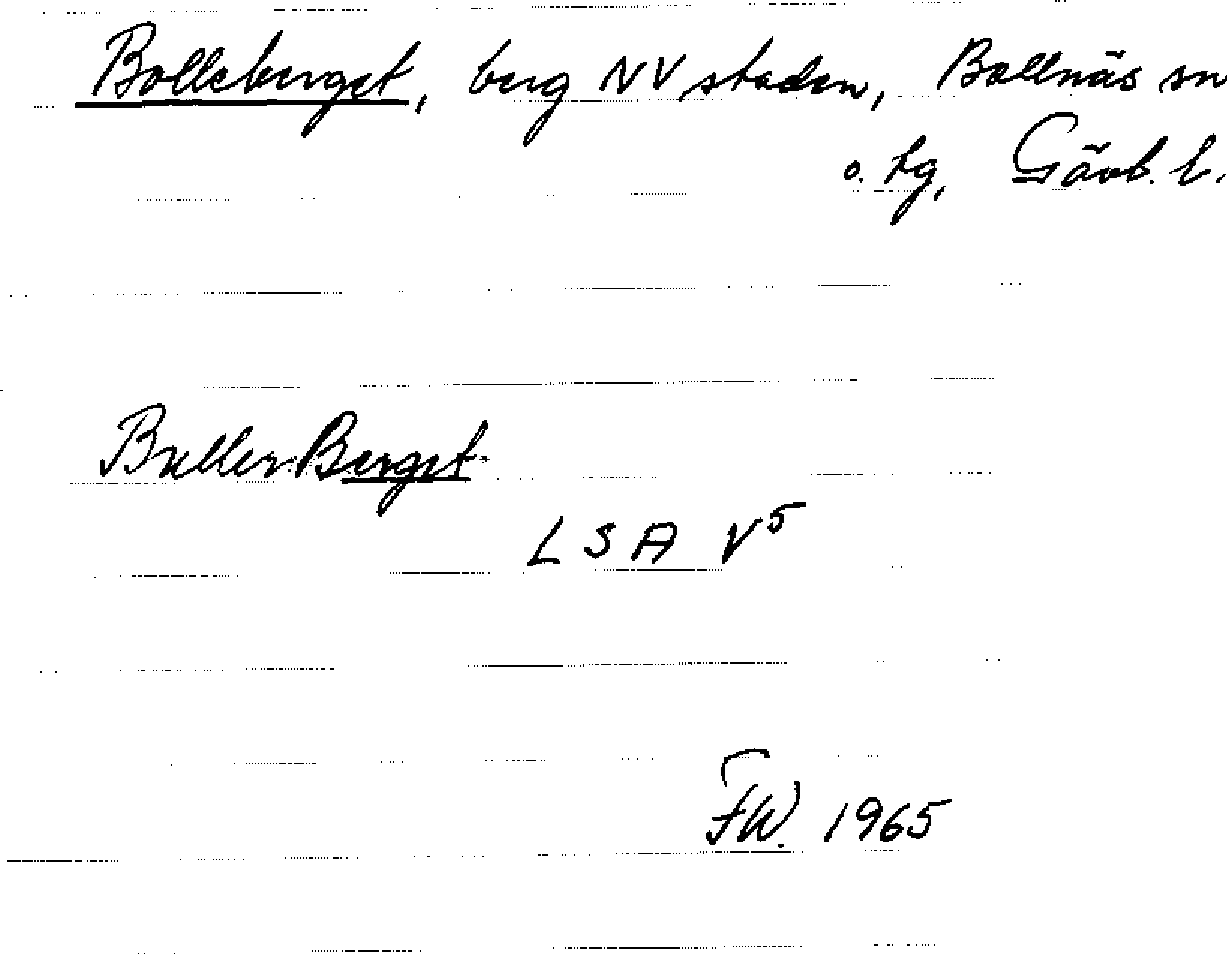 Bolleberget, berg NV staden, Bollnäs sn
o. tg, Gävb. l.
Buller Berget
L S A V5
FW. 1965